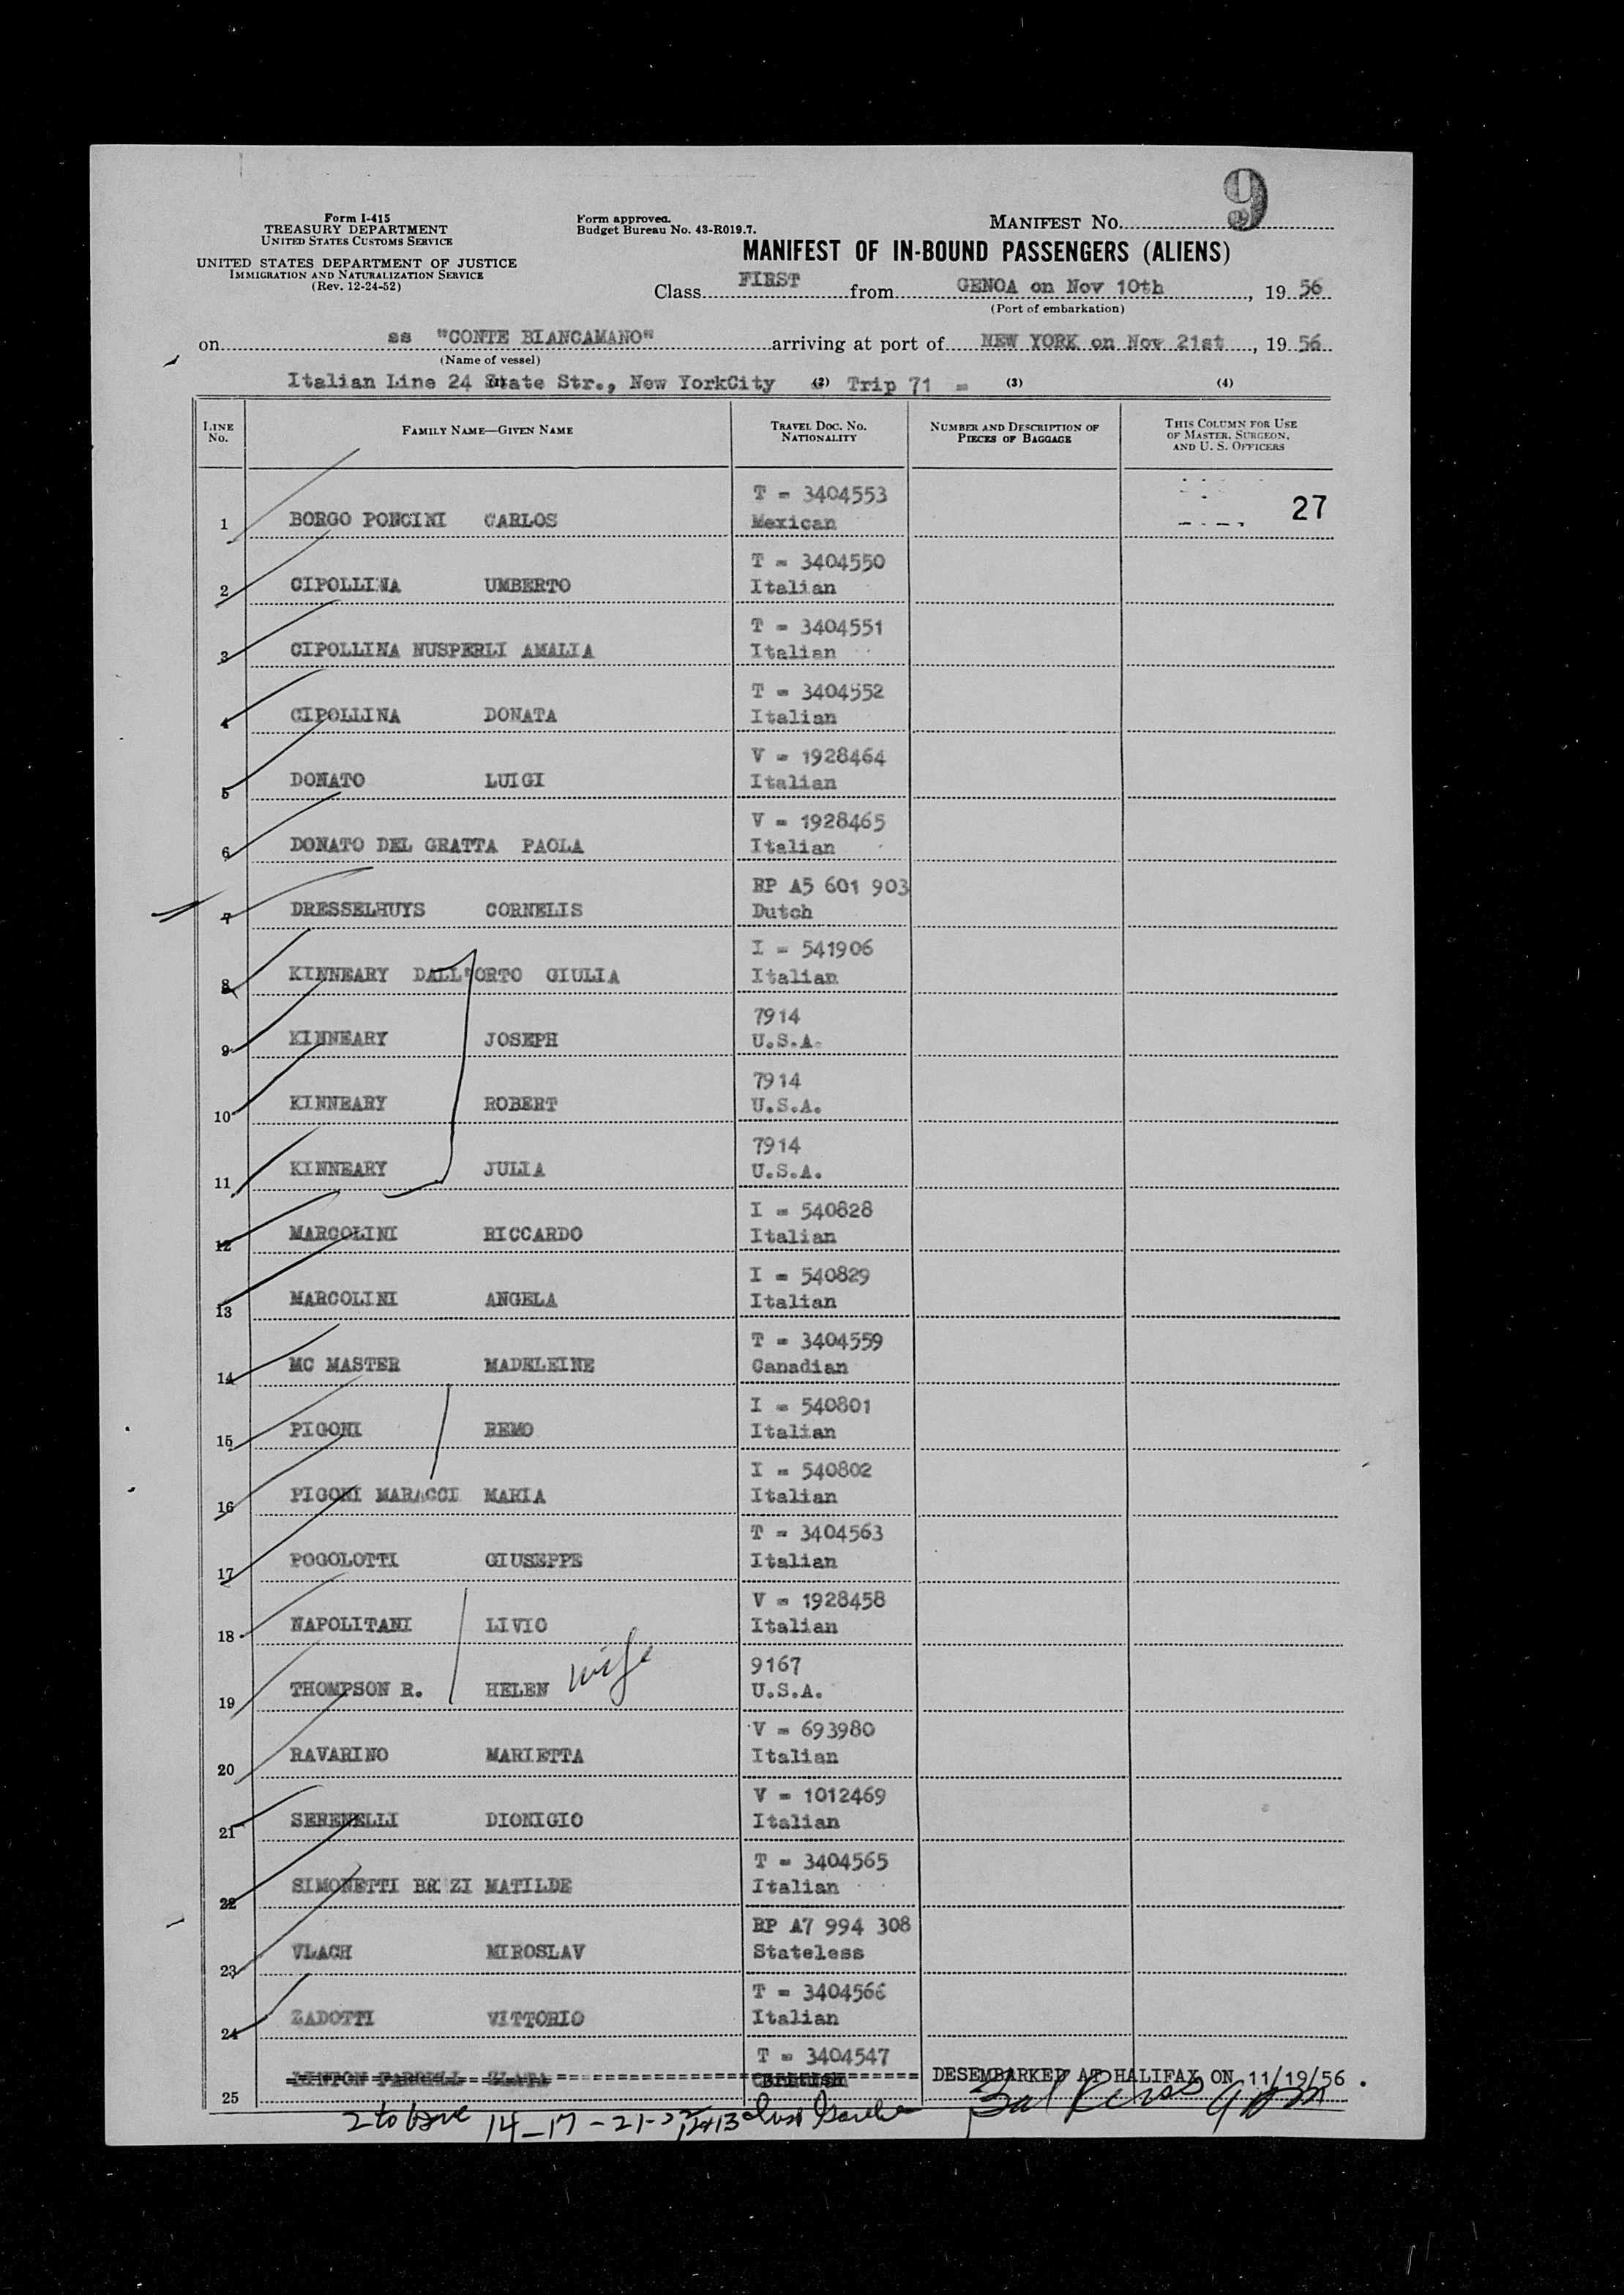 9
Form I-415
TREASURY DEPARTMENT
UNITED STATES CUSTOMS SERVICE
UNITED STATES DEPARTMENT OF JUSTICE
IMMIGRATION AND NATURALIZATION SERVICE
(Rev. 12-24-52)
Form approved.
Budget Bureau No. 43-R019.7.
MANIFEST NO.
MANIFEST OF IN-BOUND PASSENGERS (ALIENS)
Class FIRST from GENOA on Nov 10th, 19 56
(Port of embarkation)
on ss "CONTE BIANCAMANO" arriving at port of NEW YORK on Nov 21st, 19 56
(Name of vessel)
Italian Line 24 State Str., New YorkCity (2) Trip 71 = (3) (4)
LINE NO. FAMILY NAME—GIVEN NAME TRAVEL DOC. NO. NATIONALITY NUMBER AND DESCRIPTION OF PIECES OF BAGGAGE THIS COLUMN FOR USE OF MASTER, SURGEON, AND U. S. OFFICERS
T = 3404553
27
1 BORGO PONCINI CARLOS Mexican
T = 3404550
2 CIPOLLINA UMBERTO Italian
T = 3404551
3 CIPOLLINA NUSPERLI AMALIA Italian
T = 3404552
4 CIPOLLINA DONATA Italian
V = 1928464
5 DONATO LUIGI Italian
V = 1928465
6 DONATO DEL GRATTA PAOLA Italian
RP A5 601 903
7 DRESSELHUYS CORNELIS Dutch
I = 541906
8 KINNEARY DALL'ORTO GIULIA Italian
7914
9 KINNEARY JOSEPH U.S.A.
7914
10 KINNEARY ROBERT U.S.A.
7914
11 KINNEARY JULIA U.S.A.
I = 540828
12 MARCOLINI RICCARDO Italian
I = 540829
13 MARCOLINI ANGELA Italian
T = 3404559
14 MC MASTER MADELEINE Canadian
I = 540801
15 PIGONI REMO Italian
I = 540802
16 PIGONI MARACCI MARIA Italian
T = 3404563
17 POGOLOTTI GIUSEPPE Italian
V = 1928458
18 NAPOLITANI LIVIO Italian
9167
19 THOMPSON R. HELEN wife U.S.A.
V = 693980
20 RAVARINO MARIETTA Italian
V = 1012469
21 SERENELLI DIONIGIO Italian
T = 3404565
22 SIMONETTI BR ZI MATILDE Italian
RP A7 994 308
23 VLACH MIROSLAV Stateless
T = 3404566
24 ZADOTTI VITTORIO Italian
T = 3404547
25 ZLATA DESEMBARKED AT HALIFAX ON 11/19/56.
2 to 14-17-21-22